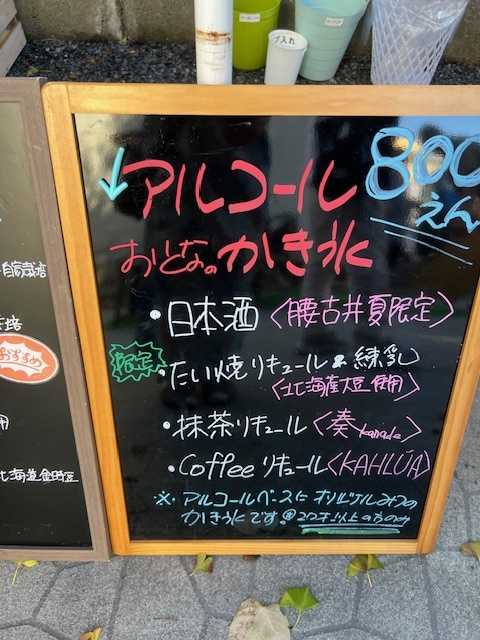 プ入れ
800
えん
↓アルコール
おとなのかき氷
・日本酒〈腰古井夏限定〉
限定
・たい焼リキュール&練乳
〈北海産大豆使用〉
・抹茶リキュール〈奏kanade〉
・Coffeeリキュール〈KAHLÚA〉
※アルコールベースにオリジナルみつの
かき氷です!※20才以上の方のみ
自家栽培
おすすめ
用
北海道金時豆